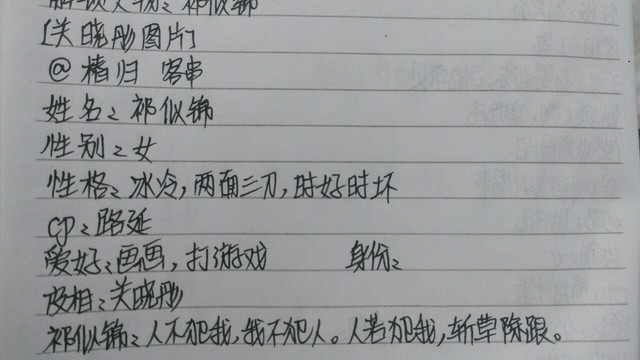 解锁人物：祁似锦
[关晓彤图片]
@椿归 客串
姓名：祁似锦
性别：女
性格：冰冷，两面三刀，时好时坏
cp：路延
爱好：画画，打游戏 身份：
皮相：关晓彤
祁似锦：人不犯我，我不犯人。人若犯我，斩草除跟。